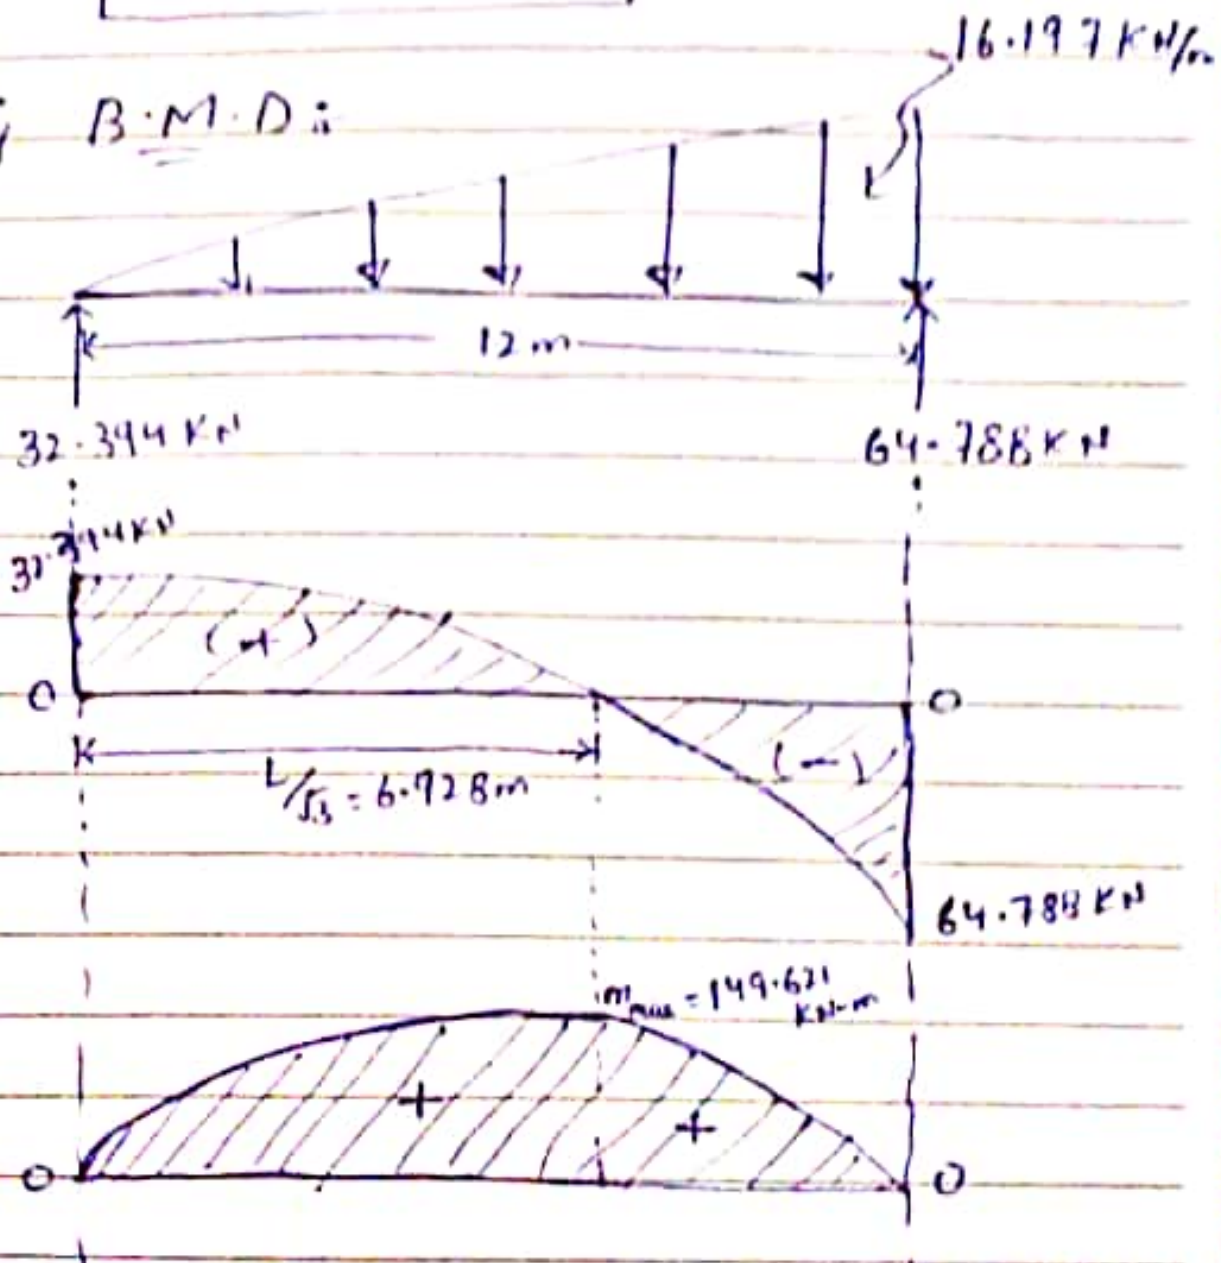 16.197 KN/m
B.M.D:
12 m
32.394 KN
64.788 KN
32.394 KN
(+)
0
0
(-)
L/√3 = 6.928m
64.788 KN
Mmax = 149.621
KN-m
+
+
0
0